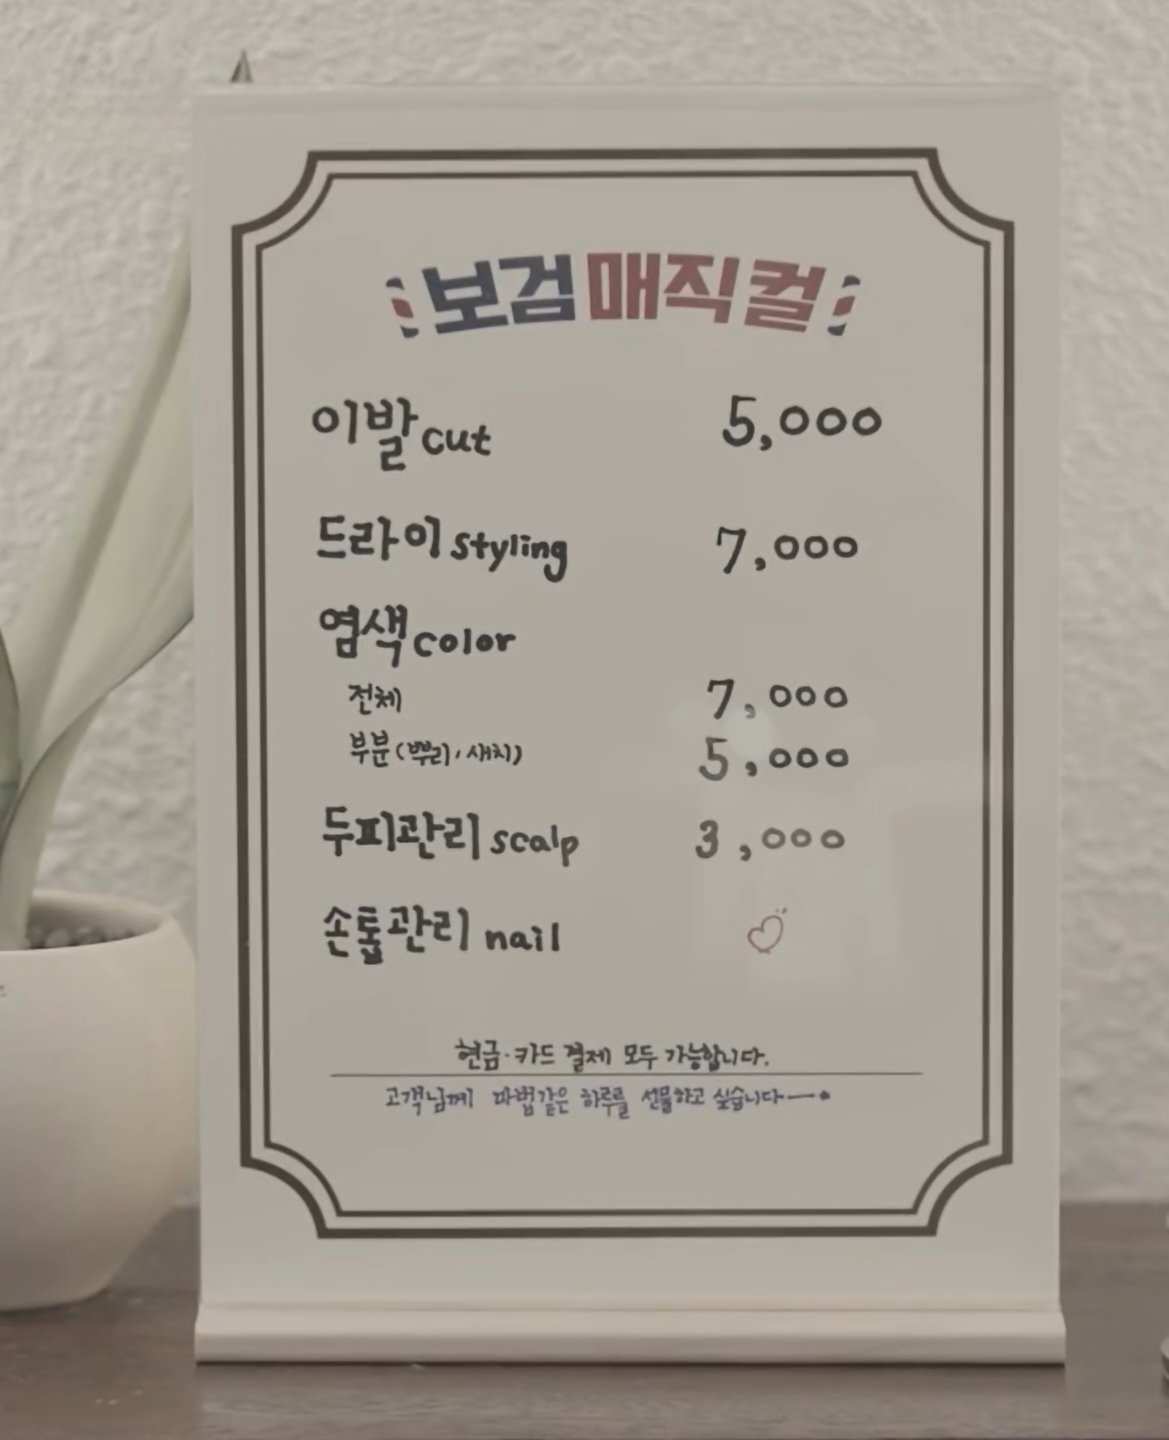 보검매직컬
이발 cut 5,000
드라이 styling 7,000
염색 color
전체 7,000
부분 (뿌리, 새치) 5,000
두피관리 scalp 3,000
손톱관리 nail
현금·카드 결제 모두 가능합니다.
고객님께 마법같은 하루를 선물하고 싶습니다